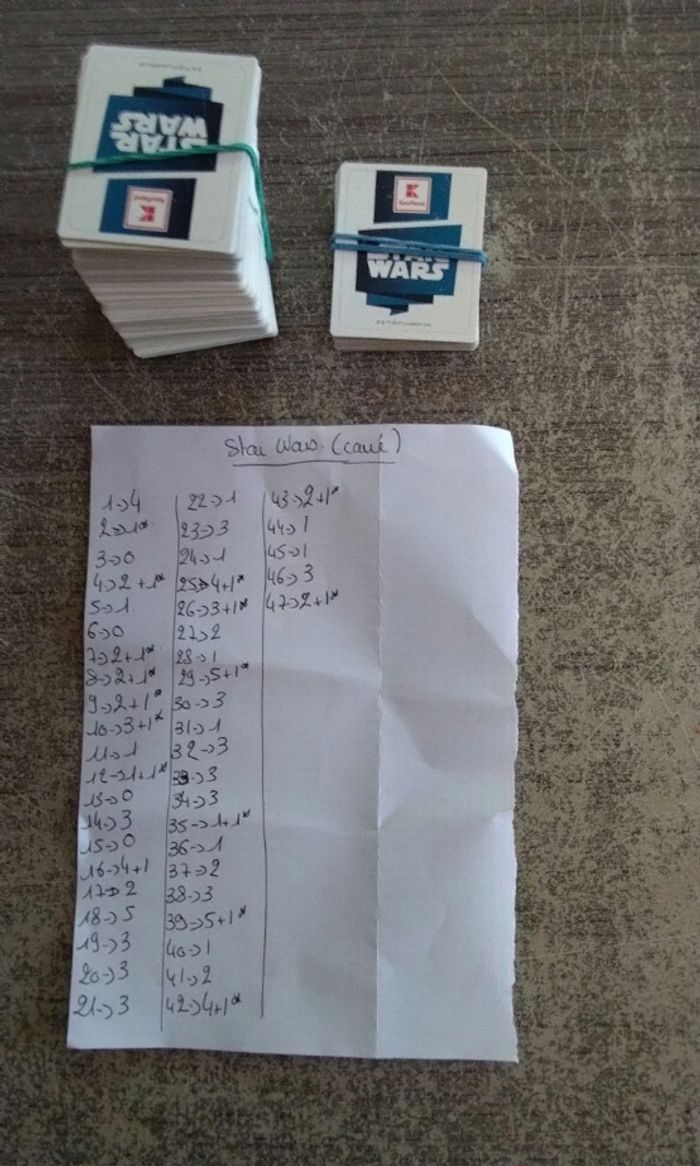 STAR
WARS
Kaufland
Kaufland
STAR
WARS
Star Wars (carré)
1→4
2→1*
3→0
4→2+1*
5→1
6→0
7→2+1*
8→2+1*
9→2+1*
10→3+1*
11→1
12→1+1*
13→0
14→3
15→0
16→4+1
17→2
18→5
19→3
20→3
21→3
22→1
23→3
24→1
25→4+1*
26→3+1*
27→2
28→1
29→5+1*
30→3
31→1
32→3
33→3
34→3
35→1+1*
36→1
37→2
38→3
39→5+1*
40→1
41→2
42→4+1*
43→2+1*
44→1
45→1
46→3
47→2+1*